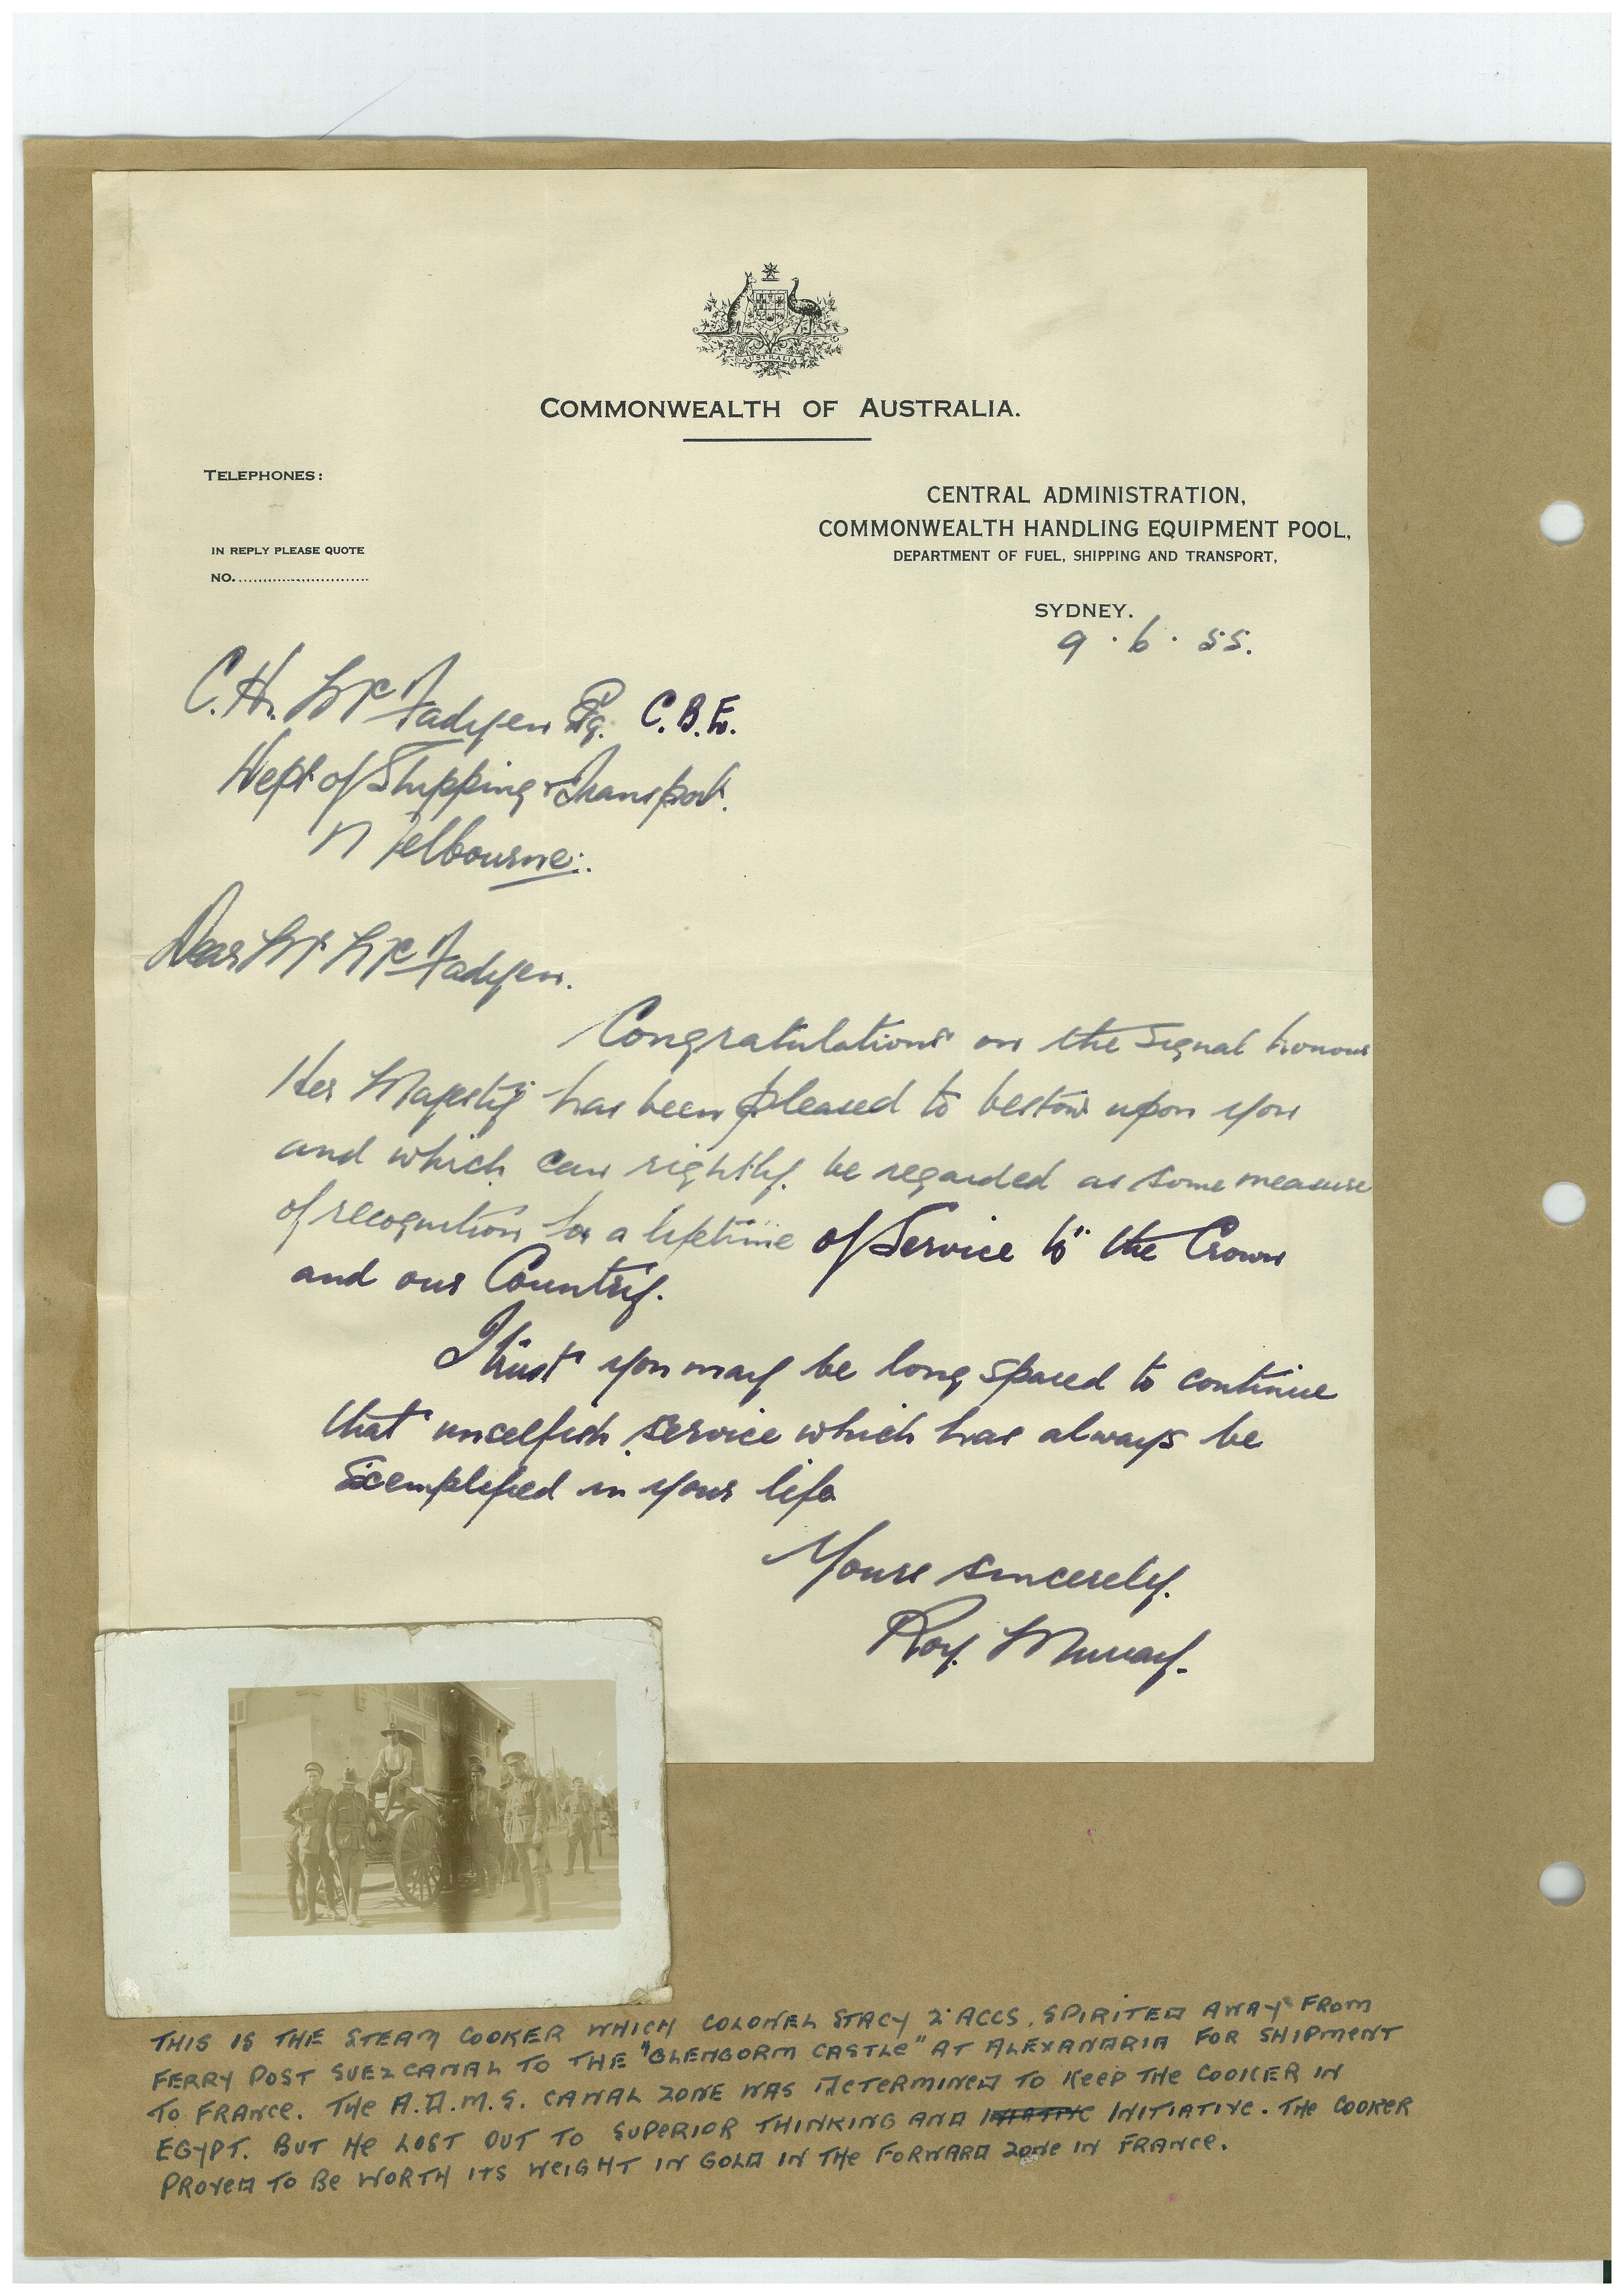 AUSTRALIA
COMMONWEALTH OF AUSTRALIA.
TELEPHONES:
CENTRAL ADMINISTRATION,
COMMONWEALTH HANDLING EQUIPMENT POOL,
DEPARTMENT OF FUEL, SHIPPING AND TRANSPORT,
IN REPLY PLEASE QUOTE
NO.............................
SYDNEY.
9.6.55.
C.H. McFadyen Esq. C.B.E.
Dept of Shipping & Transport.
Melbourne.
Dear Mr McFadyen.
Congratulations on the signal honour
Her Majesty has been pleased to bestow upon you
and which can rightly be regarded as some measure
of recognition for a lifetime of Service to the Crown
and our Country.
I trust you may be long spared to continue
that uncelfish service which has always be
exemplified in your life
Yours sincerely.
Roy. Murray.
THIS IS THE STEAM COOKER WHICH COLONEL STACY 2'ACCS. SPIRITED AWAY FROM
FERRY POST SUEZ CANAL TO THE "GLENGORM CASTLE" AT ALEXANDRIA FOR SHIPMENT
TO FRANCE. THE A.D.M.S. CANAL ZONE WAS DETERMINED TO KEEP THE COOKER IN
EGYPT. BUT HE LOST OUT TO SUPERIOR THINKING AND INITIATIVE. THE COOKER
PROVED TO BE WORTH ITS WEIGHT IN GOLD IN THE FORWARD ZONE IN FRANCE.